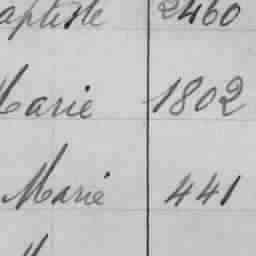 aptiste 2460
Marie 1802
Marie 441